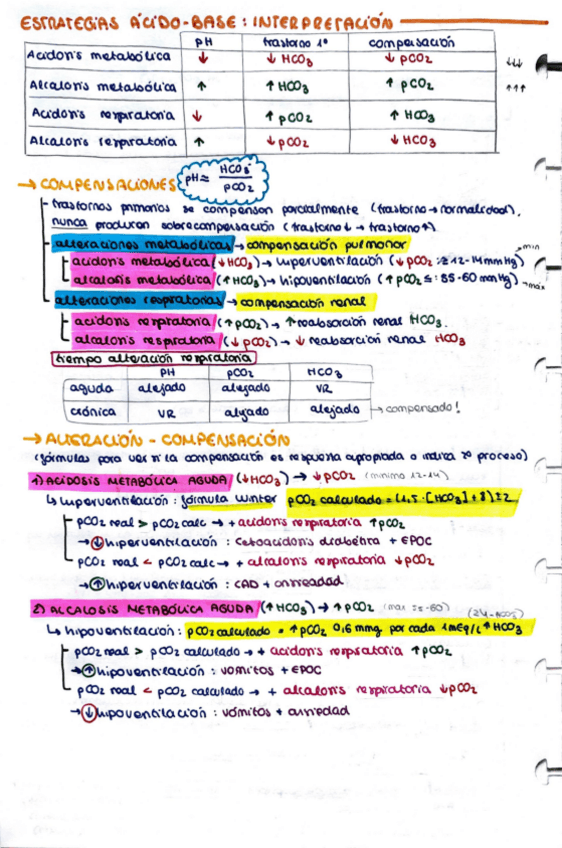 ESTRATEGIAS ÁCIDO-BASE: INTERPRETACIÓN
pH trastorno 1º compensación
Acidosis metabólica ↓ ↓ HCO3 ↓ pCO2 ↓↓↓
Alcalosis metabólica ↑ ↑ HCO3 ↑ pCO2 ↑↑↑
Acidosis respiratoria ↓ ↑ pCO2 ↑ HCO3
Alcalosis respiratoria ↑ ↓ pCO2 ↓ HCO3
→ COMPENSACIONES pH ≈ HCO3⁻ / pCO2
trastornos primarios se compensan parcialmente (trastorno → normalidad),
nunca producen sobrecompensación (trastorno ↓ → trastorno ↑).
alteraciones metabólicas → compensación pulmonar
acidosis metabólica (↓ HCO3) → hiperventilación (↓ pCO2 : ≥ 12-14 mmHg) → min
alcalosis metabólica (↑ HCO3) → hipoventilación (↑ pCO2 ≤ : 55-60 mmHg) → máx
alteraciones respiratorias → compensación renal
acidosis respiratoria (↑ pCO2) → ↑ reabsorción renal HCO3.
alcalosis respiratoria (↓ pCO2) → ↓ reabsorción renal HCO3
tiempo alteración respiratoria
pH pCO2 HCO3
aguda alejado alejado VR
crónica VR alejado alejado → compensado!
→ ALTERACIÓN - COMPENSACIÓN
(fórmulas para ver si la compensación es respuesta apropiada o indica 2º proceso)
1) ACIDOSIS METABÓLICA AGUDA (↓ HCO3) → ↓ pCO2 (mínimo 12-14)
↳ hiperventilación : fórmula winter pCO2 calculado = (1,5 · [HCO3] + 8) ± 2
pCO2 real > pCO2 calc → + acidosis respiratoria ↑ pCO2
→ ↓ hiperventilación : cetoacidosis diabética + EPOC
pCO2 real < pCO2 calc → + alcalosis respiratoria ↓ pCO2
→ ↑ hiperventilación : CAD + ansiedad
2) ALCALOSIS METABÓLICA AGUDA (↑ HCO3) → ↑ pCO2 (max 55-60) (24-HCO3)
↳ hipoventilación : pCO2 calculado = ↑ pCO2 0,6 mmg por cada 1 mEq/L ↑ HCO3
pCO2 real > pCO2 calculado → + acidosis respiratoria ↑ pCO2
→ ↑ hipoventilación : vómitos + EPOC
pCO2 real < pCO2 calculado → + alcalosis respiratoria ↓ pCO2
→ ↓ hipoventilación : vómitos + ansiedad